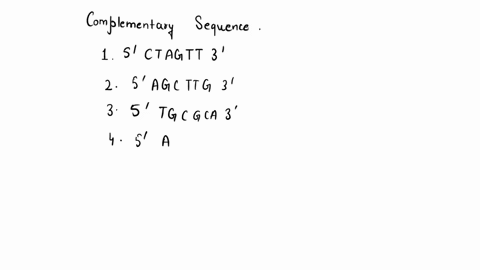 Complementary Sequence .
1. 5' CTAGTT 3'
2. 5' AGCTTG 3'
3. 5' TGCGCA 3'
4. 5' A